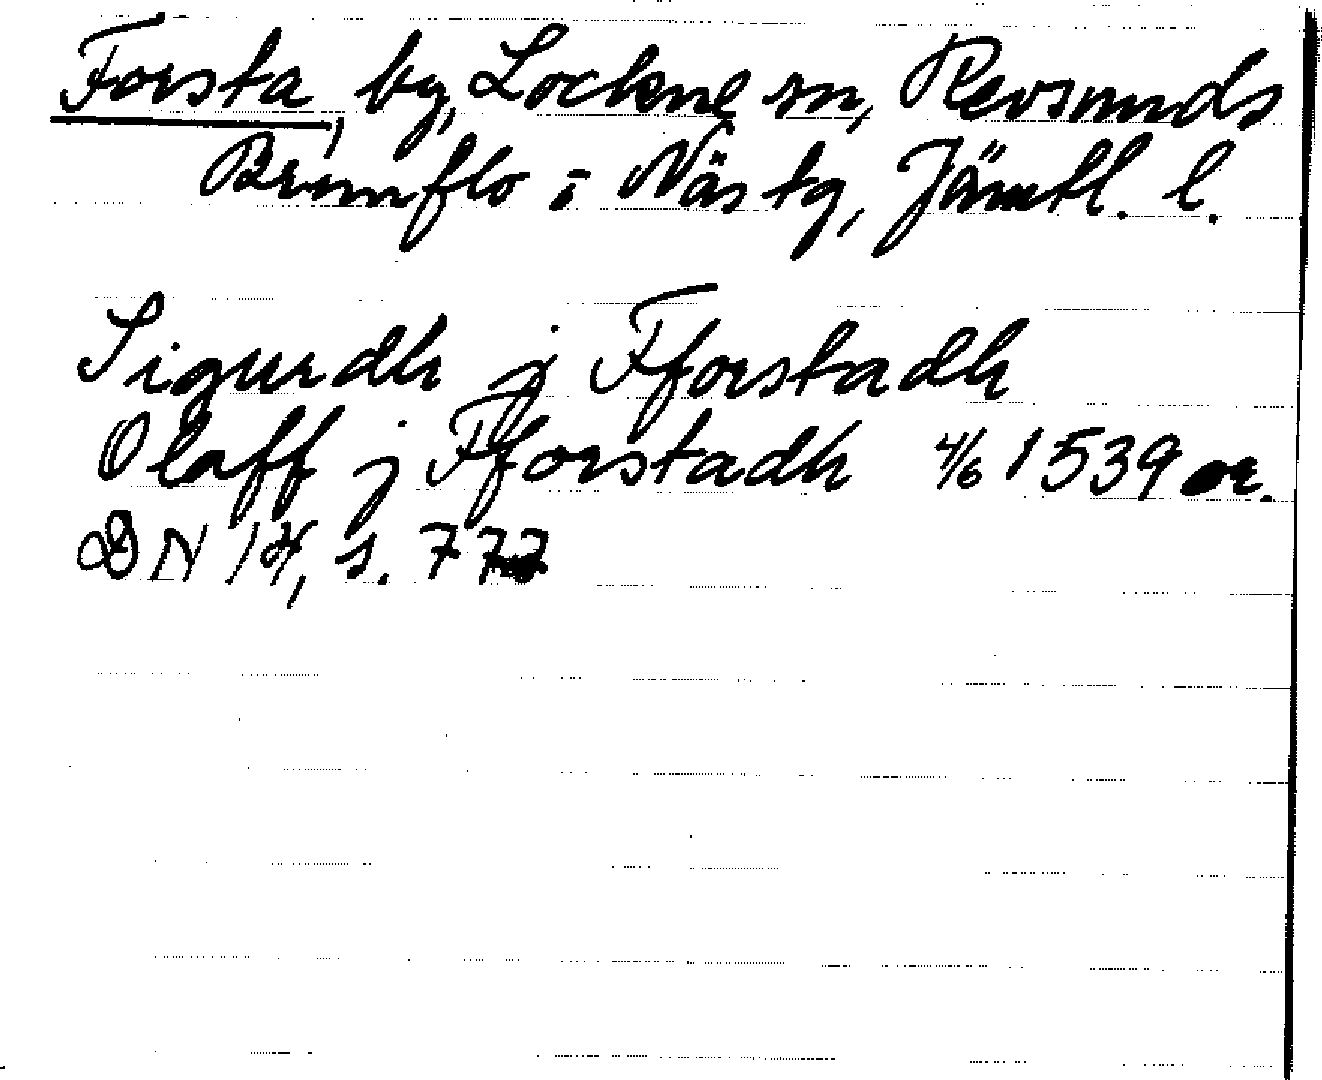 Forsta, by, Lockne sn, Revsunds
Brunflo i Näs tg, Jämtl. l.
Sigurdh j Fforstadh
Olaff j Fforstadh 4/6 1539 or.
DN 14, s. 772